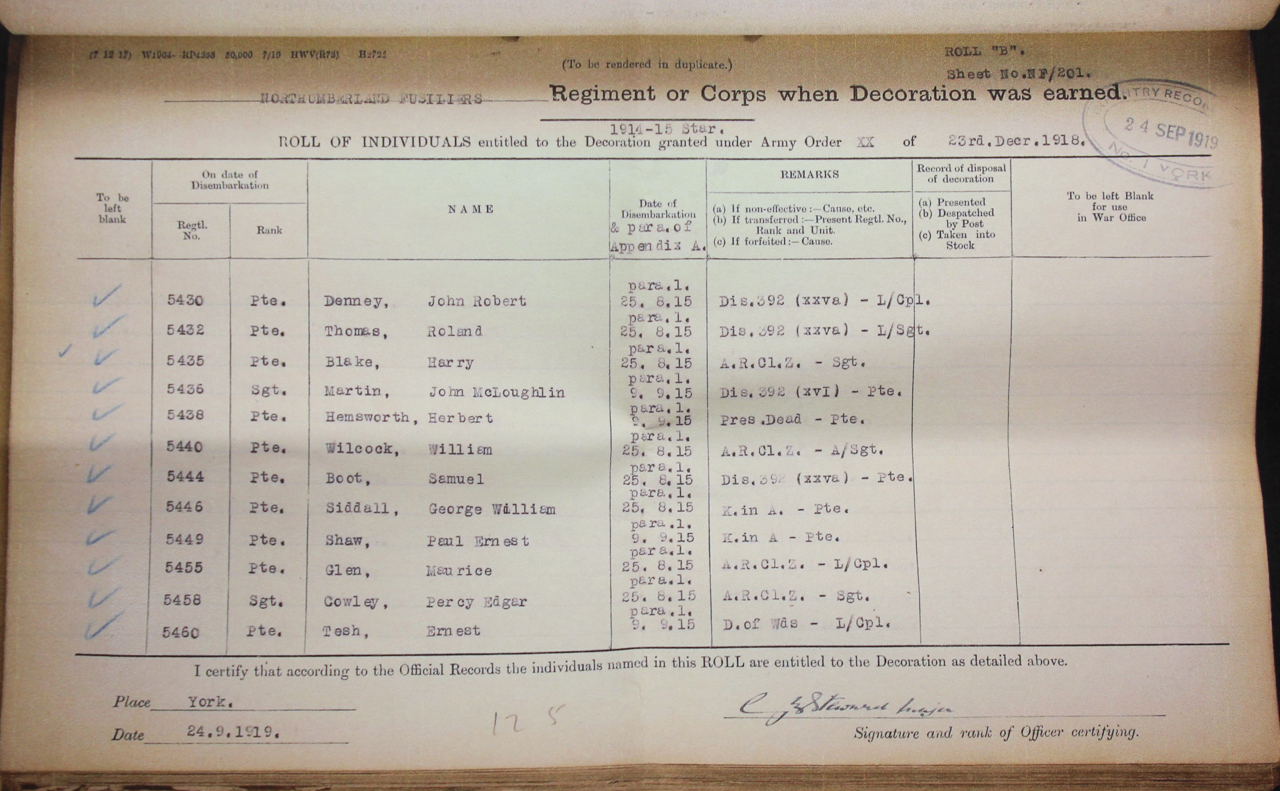 (7 12 17) W1904- RP4383 50,000 7/19 HWV(R73) H2725
ROLL "B".
(To be rendered in duplicate.)
Sheet No.NF/201.
NORTHUMBERLAND FUSILIERS Regiment or Corps when Decoration was earned.
24 SEP 1919
No. 1 YORK
1914-15 Star.
ROLL OF INDIVIDUALS entitled to the Decoration granted under Army Order XX of 23rd.Decr.1918.
To be left blank
On date of Disembarkation
Regtl. No.
Rank
NAME
Date of Disembarkation & para.of Appendix A.
REMARKS
(a) If non-effective :—Cause, etc.
(b) If transferred :—Present Regtl. No., Rank and Unit.
(c) If forfeited :— Cause.
Record of disposal of decoration
(a) Presented
(b) Despatched by Post
(c) Taken into Stock
To be left Blank for use in War Office
para.1.
5430 Pte. Denney, John Robert 25. 8.15 Dis.392 (xxva) - L/Cpl.
para.1.
5432 Pte. Thomas, Roland 25. 8.15 Dis.392 (xxva) - L/Sgt.
para.1.
5435 Pte. Blake, Harry 25. 8.15 A.R.Cl.Z. - Sgt.
para.1.
5436 Sgt. Martin, John McLoughlin 9. 9.15 Dis.392 (xvI) - Pte.
para.1.
5438 Pte. Hemsworth, Herbert 9. 9.15 Pres.Dead - Pte.
para.1.
5440 Pte. Wilcock, William 25. 8.15 A.R.Cl.Z. - A/Sgt.
para.1.
5444 Pte. Boot, Samuel 25. 8.15 Dis.392 (xxva) - Pte.
para.1.
5446 Pte. Siddall, George William 25. 8.15 K.in A. - Pte.
para.1.
5449 Pte. Shaw, Paul Ernest 9. 9.15 K.in A - Pte.
para.1.
5455 Pte. Glen, Maurice 25. 8.15 A.R.Cl.Z. - L/Cpl.
para.1.
5458 Sgt. Cowley, Percy Edgar 25. 8.15 A.R.Cl.Z. - Sgt.
para.1.
5460 Pte. Tesh, Ernest 9. 9.15 D.of Wds - L/Cpl.
I certify that according to the Official Records the individuals named in this ROLL are entitled to the Decoration as detailed above.
Place York.
Date 24.9.1919.
12 5
Major
Signature and rank of Officer certifying.